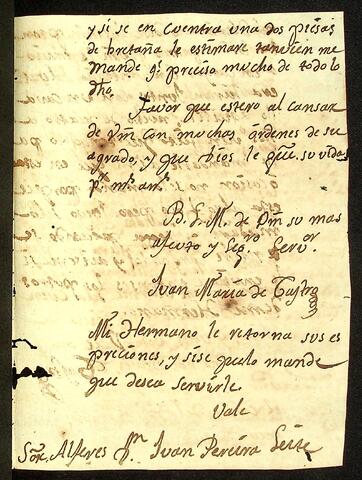 y si se en cuentra una dos piesas
de bretaña le estimare tanvien me
mande qe. preciso mucho de todo lo
dho.
Favor que estero al cansar
de Vm con muchas órdenes de su
agrado, y que Dios le gue. su vida
ps. ms. as.
B. S. M. de Vm su mas
afecto y Segro. Servor.
Juan Maria de Castro
Mi Hermano le retorna sus es
preciones, y si se qualo mande
que desea servirle.
Vale
Sor. Alferes Dn. Juan Pereira Leite